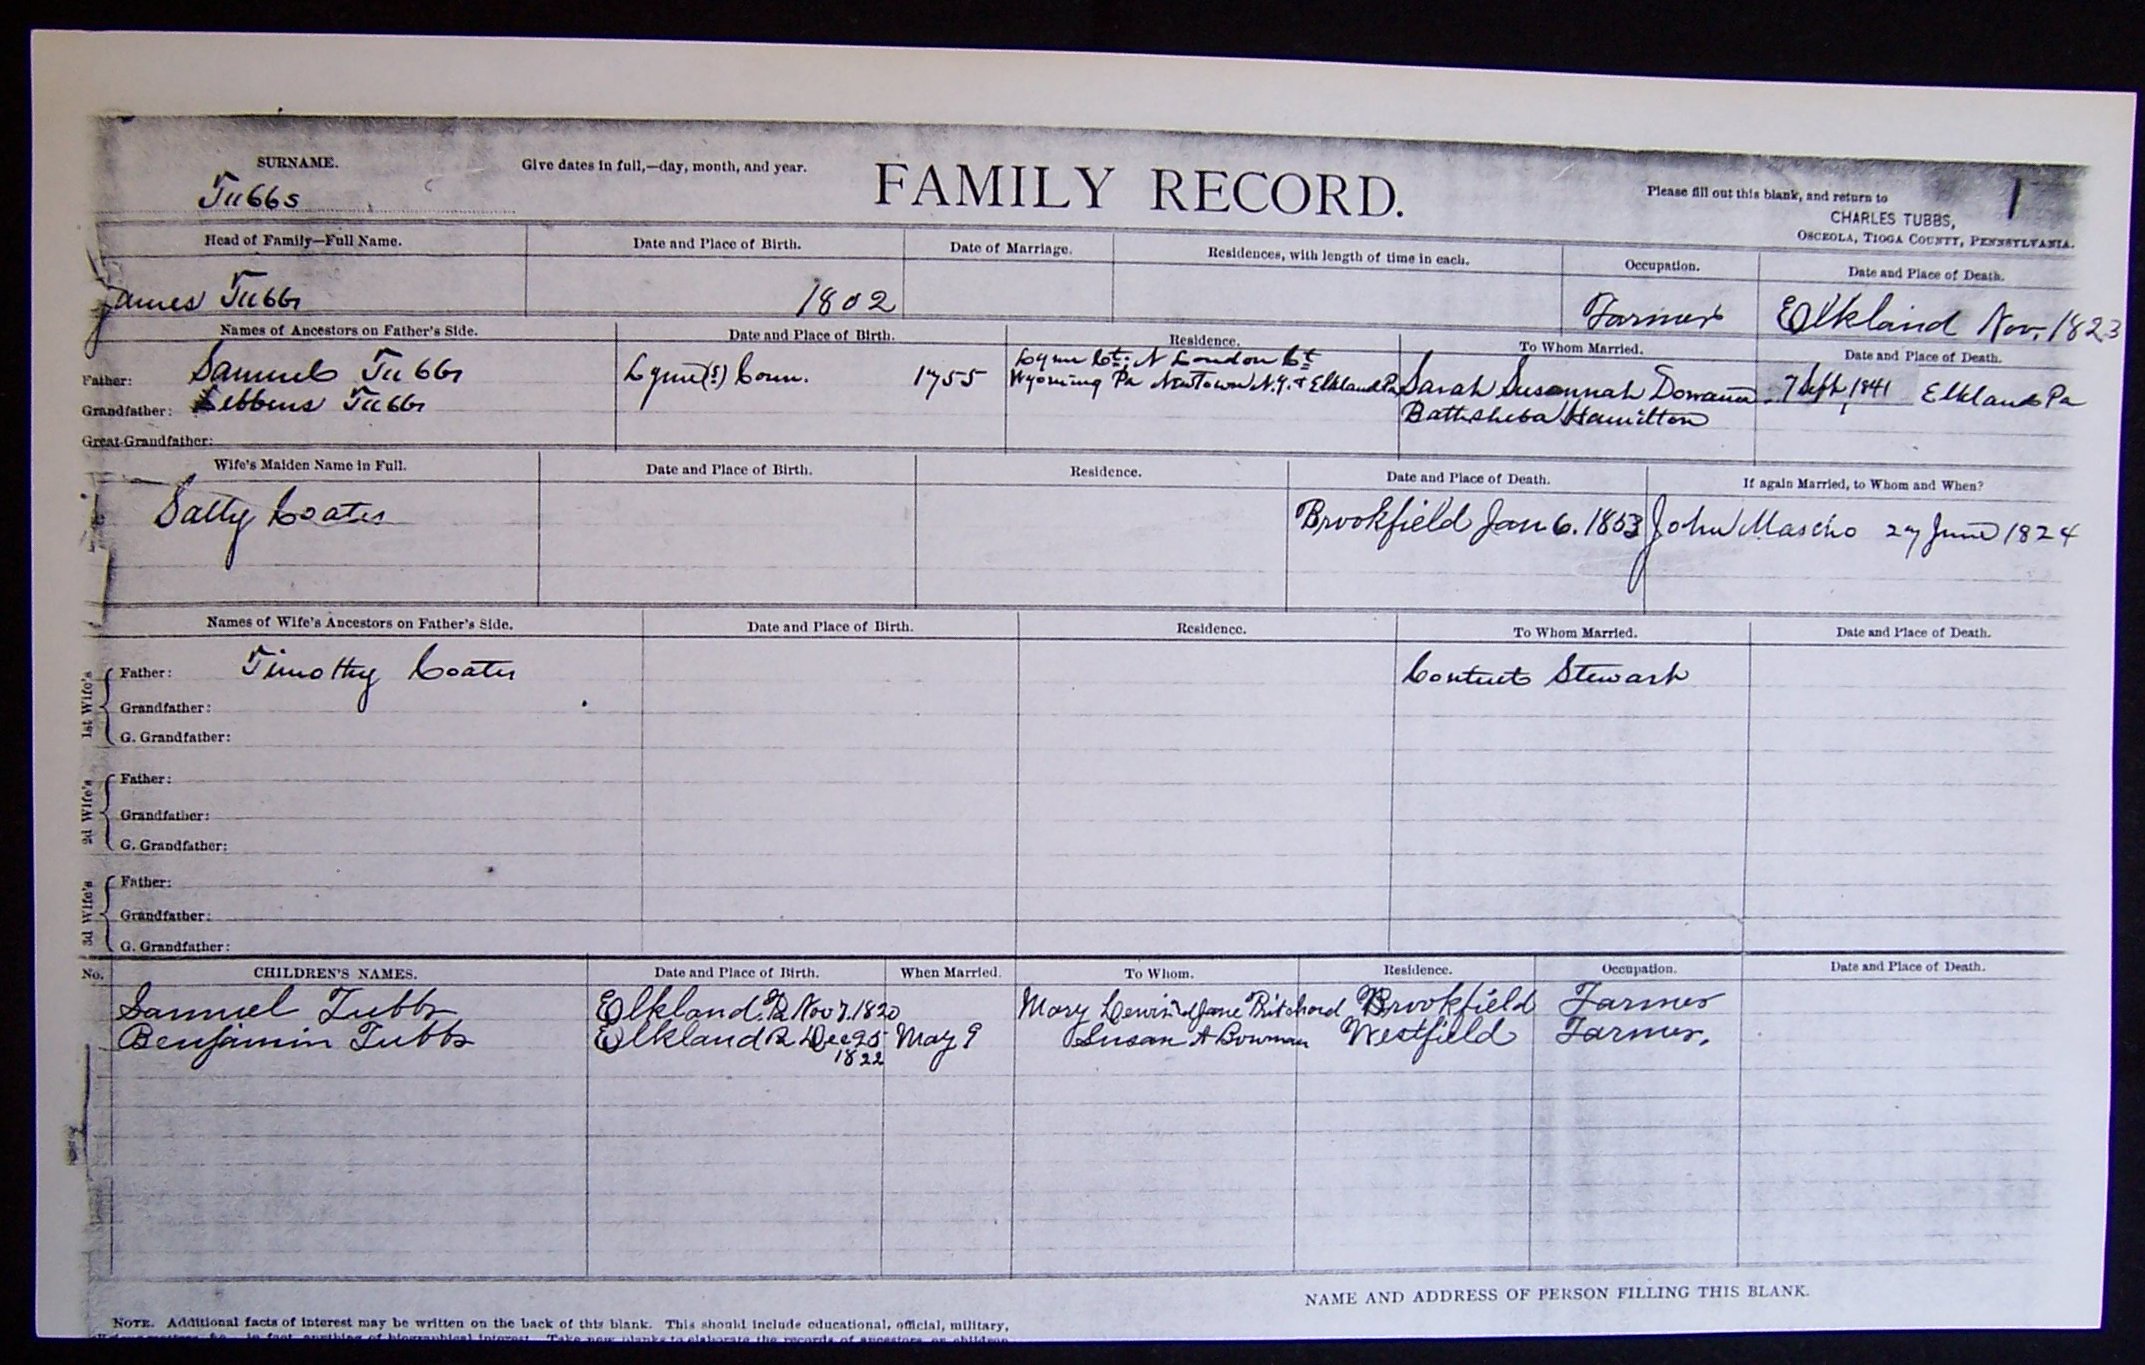 SURNAME.
Tubbs
Give dates in full,—day, month, and year.
FAMILY RECORD.
Please fill out this blank, and return to
CHARLES TUBBS,
OSCEOLA, TIOGA COUNTY, PENNSYLVANIA.
1
Head of Family—Full Name. Date and Place of Birth. Date of Marriage. Residences, with length of time in each. Occupation. Date and Place of Death.
James Tubbs 1802 Farmer Elkland Nov. 1823
Names of Ancestors on Father's Side. Date and Place of Birth. Residence. To Whom Married. Date and Place of Death.
Lyme Ct; N London Ct
Father: Samuel Tubbs Lyme(s) Conn. 1755 Wyoming Pa Newtown N.Y. & Elkland Pa Sarah Susannah 7 Sept, 1841 Elkland Pa
Grandfather: Lebbeus Tubbs Bathsheba Hamilton
Great-Grandfather:
Wife's Maiden Name in Full. Date and Place of Birth. Residence. Date and Place of Death. If again Married, to Whom and When?
Sally Coates Brookfield Jan 6. 1853 John Mascho 27 June 1824
Names of Wife's Ancestors on Father's Side. Date and Place of Birth. Residence. To Whom Married. Date and Place of Death.
1st Wife's
Father: Timothy Coates Content Stewart
Grandfather:
G. Grandfather:
2d Wife's
Father:
Grandfather:
G. Grandfather:
3d Wife's
Father:
Grandfather:
G. Grandfather:
No. CHILDREN'S NAMES. Date and Place of Birth. When Married. To Whom. Residence. Occupation. Date and Place of Death.
Samuel Tubbs Elkland. Pa Nov 7. 1820 Mary Lewis 2d Jane Pritchard Brookfield Farmer
Benjamin Tubbs Elkland Pa Dec 25 May 9 Susan A Bowman Westfield Farmer.
1822
NAME AND ADDRESS OF PERSON FILLING THIS BLANK.
NOTE. Additional facts of interest may be written on the back of this blank. This should include educational, official, military,
in fact, anything of biographical interest. Take new blanks to elaborate the records of ancestors or children